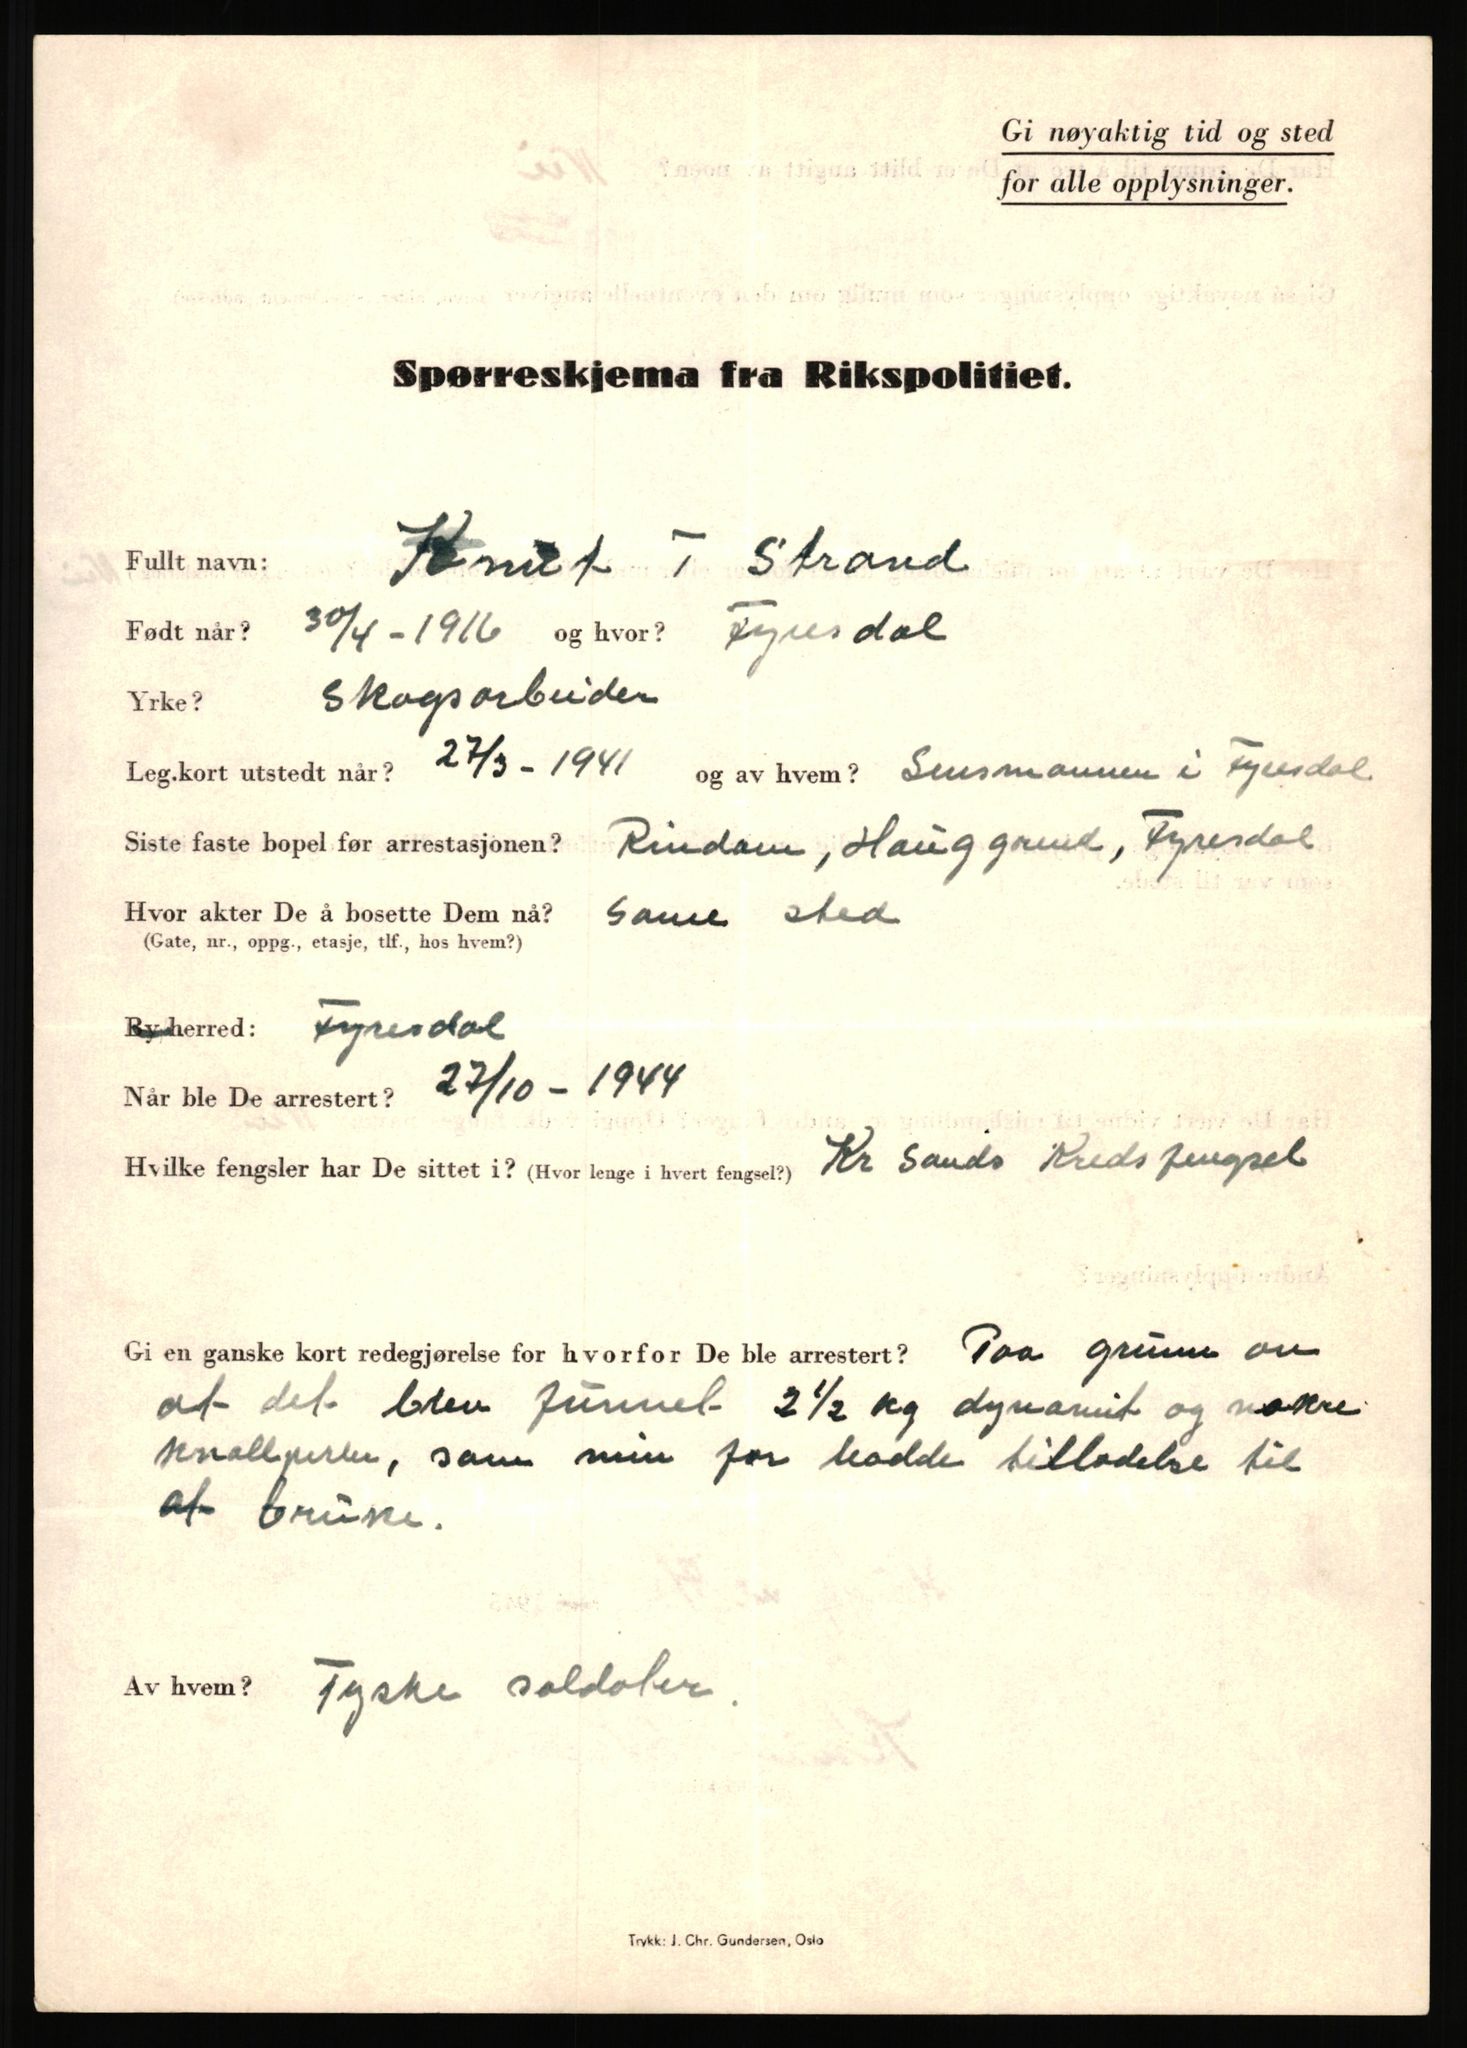 Gi nøyaktig tid og sted
for alle opplysninger.
Spørreskjema fra Rikspolitiet.
Fullt navn: Knut T Strand
Født når? 30/4 - 1916 og hvor? Fyresdal
Yrke? Skogsarbeider
Leg.kort utstedt når? 27/3 - 1941 og av hvem? Lensmannen i Fyresdal
Siste faste bopel før arrestasjonen? Rindam, Hauggrend, Fyresdal
Hvor akter De å bosette Dem nå? Same sted
(Gate, nr., oppg., etasje, tlf., hos hvem?)
By herred: Fyresdal
Når ble De arrestert? 27/10 - 1944
Hvilke fengsler har De sittet i? (Hvor lenge i hvert fengsel?) Kr Sands Kredsfengsel
Gi en ganske kort redegjørelse for hvorfor De ble arrestert? Paa grunn av
at det blev funnet 2 1/2 kg dynamit og nokre
knallperler, som min far hadde tilladelse til
at bruke.
Av hvem? Tyske soldater.
Trykk: J. Chr. Gundersen, Oslo